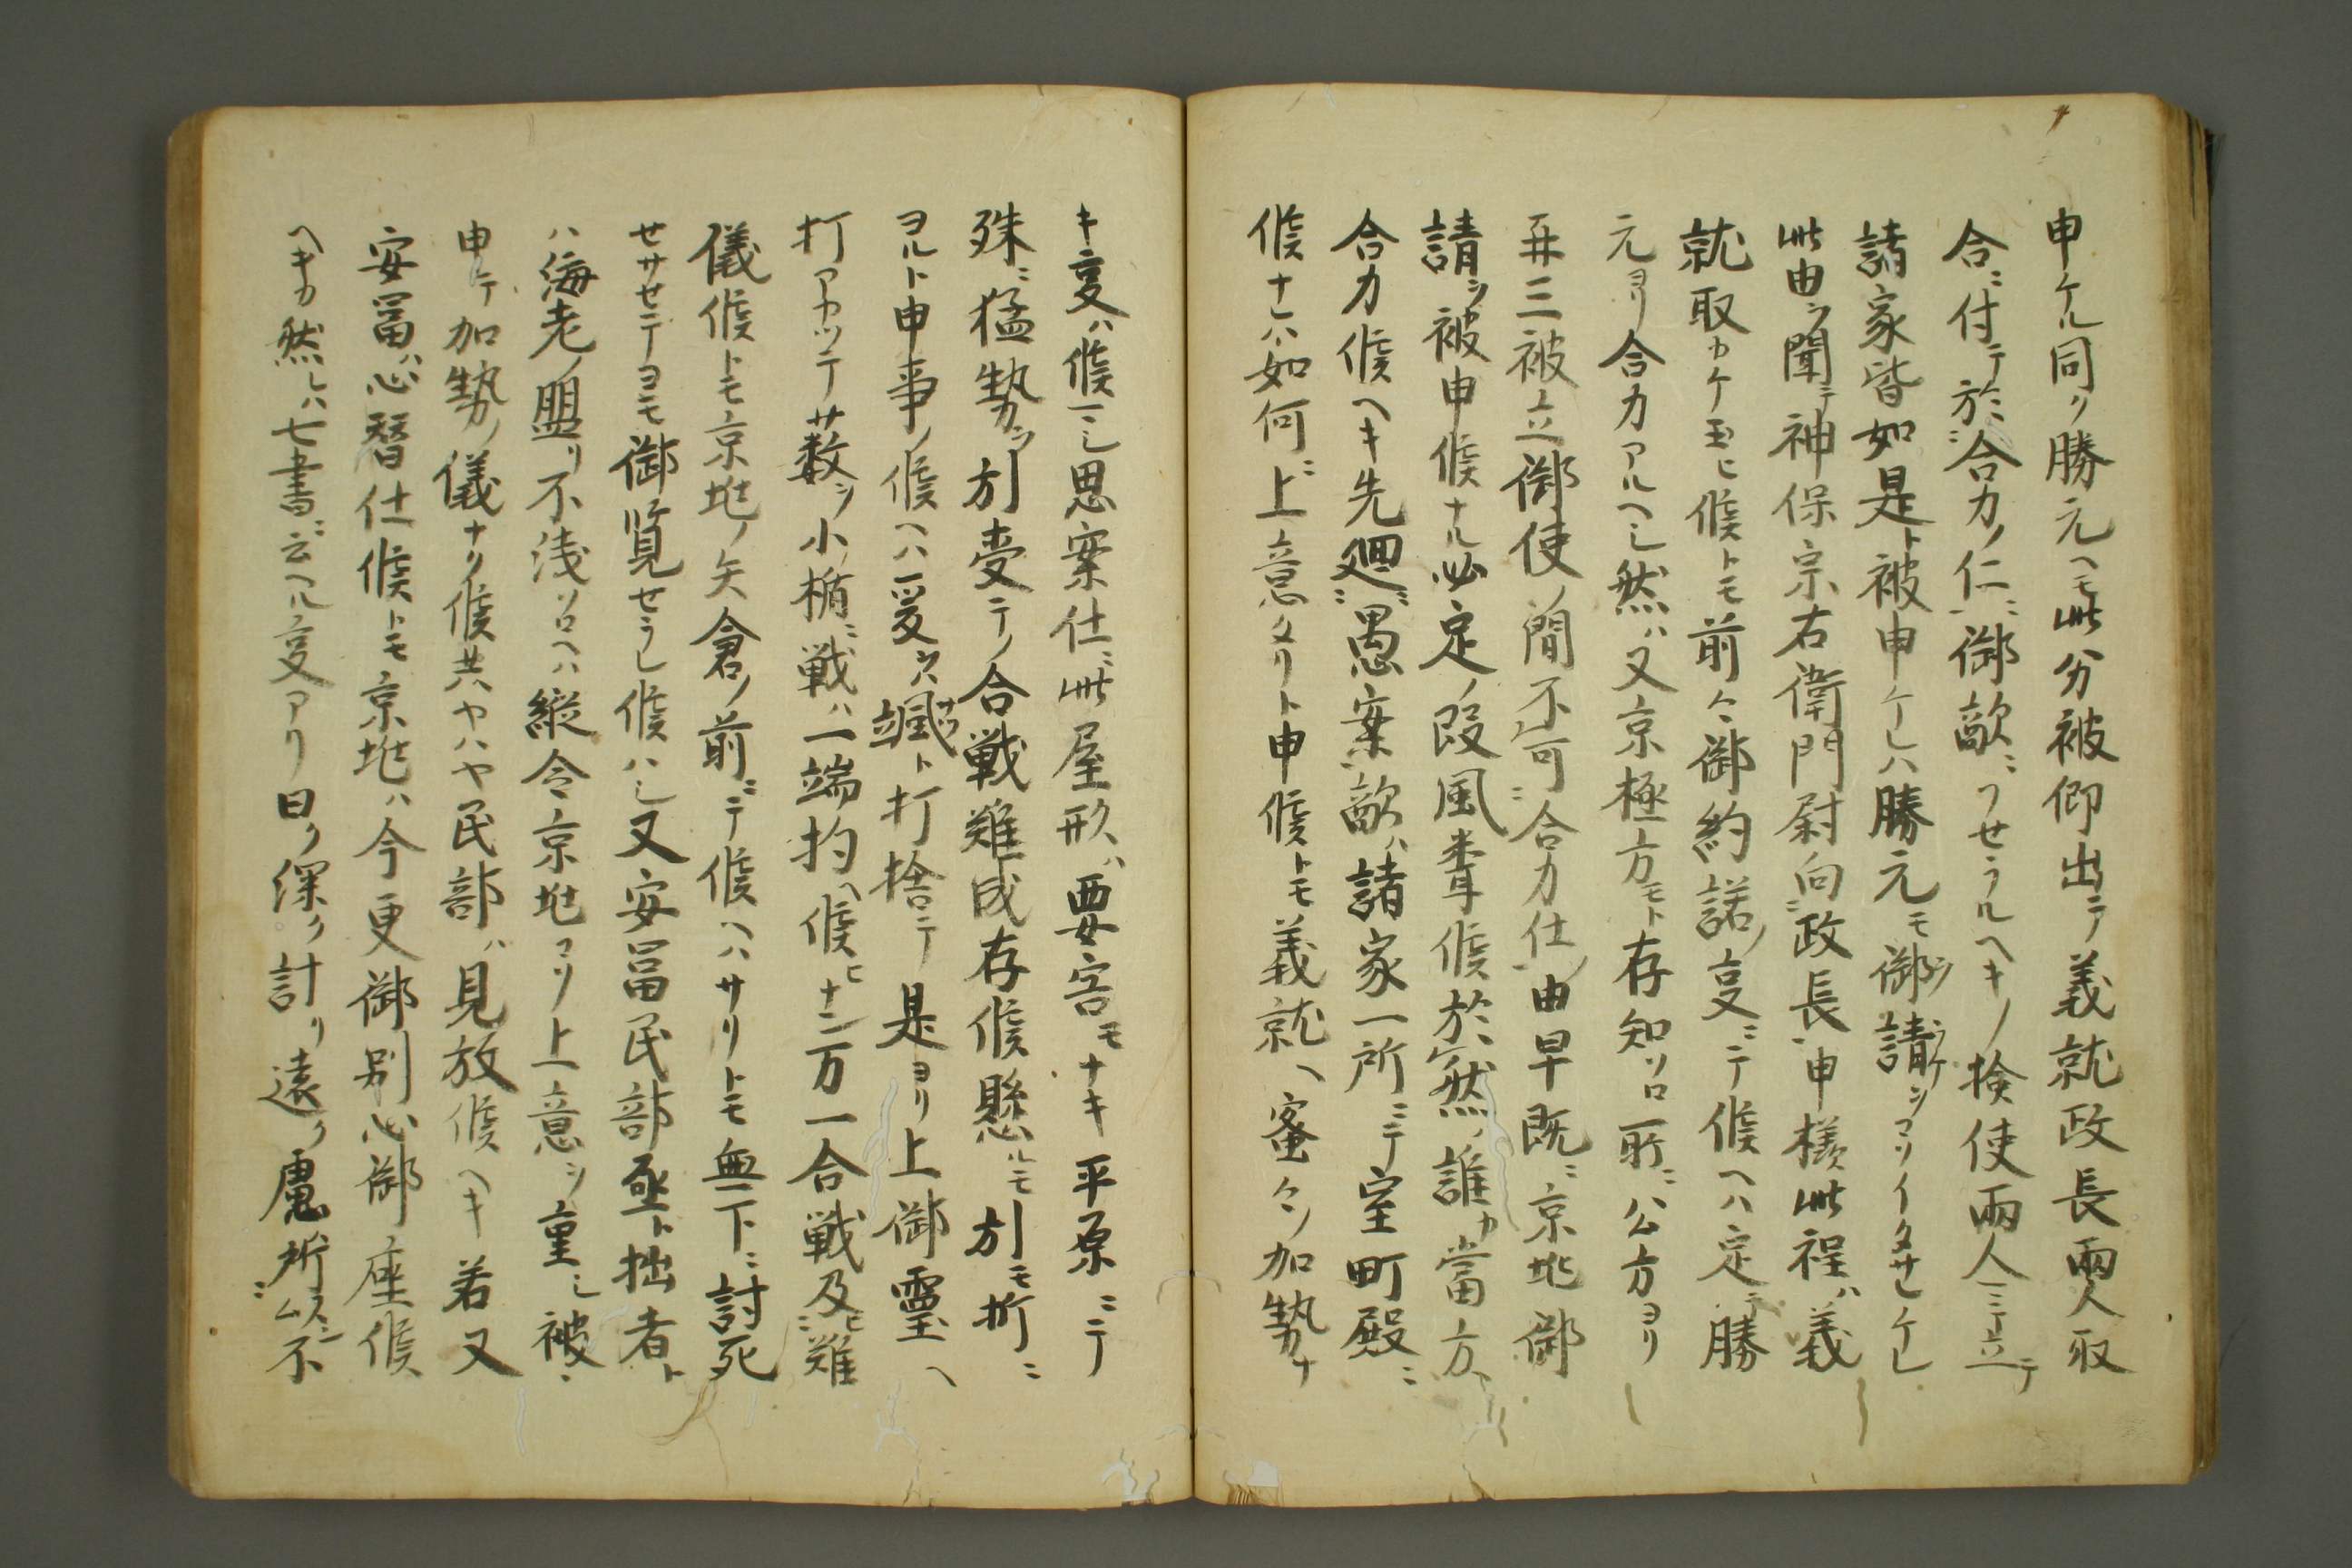 申ケル同ク勝元ヘモ此分被仰出テ義就政長両人取
合ニ付テ於ニ合力ノ仁ニ御敵ニフせラルヘキノ検使両人ミテ立テ
諸家皆如是ト被申ケレハ勝元モ御請ヲシマツイタサレケレ
此由ヲ聞テ神保宗右衛門尉向政長ニ申様此程ハ義
就取カケ玉ヒ候トモ前々御約諾ノ事ニテ候ヘハ定テ勝
元ヨリ合力アルヘシ然ハ又京極方モト存知ソロ所ニ公方ヨリ
再三被立御使ノ間不可合力仕ノ由早既ニ京兆御
請ヲ被申候ナル必定ノ段風聞候於然ハ誰カ當方ヘ
合力候ヘキ先廻愚案敵ハ諸家一所ニテ室町殿ニ
候ナハ如何ニ上意タリト申候トモ義就ヘ蜜々ノ加勢ナ
キ事ハ候マシ思案仕ニ此屋形ハ要害モナキ平原ニテ
殊ニ猛勢ヲ引受テノ合戦難成存候懸ルモ引モ折ニ
ヨルト申事ノ候ヘハ爰ヲハ颯ト打捨テ是ヨリ上御霊ヘ
打アカツテ藪ヲ小楯ニ戦ハ一端抅ヘ候ヒナン万一合戦及ヒ難
儀候トモ京兆ノ矢倉ノ前ニテ候ヘハサリトモ無下ニ討死
せサせテヨモ御覧せラレ候ハシ又安冨民部亟ト拙者ト
ハ海老ノ盟リ不浅ソロヘハ縦令京兆コソ上意ヲ重シ被
申テ加勢ノ儀ナク候共ヤハヤ民部ハ見放候ヘキ若又
安冨ハ心替仕候トモ京兆ハ今更御別心御座候
ヘキカ然レハ七書ニ云ヘル事アリ曰ク深ク計リ遠ク慮所以不